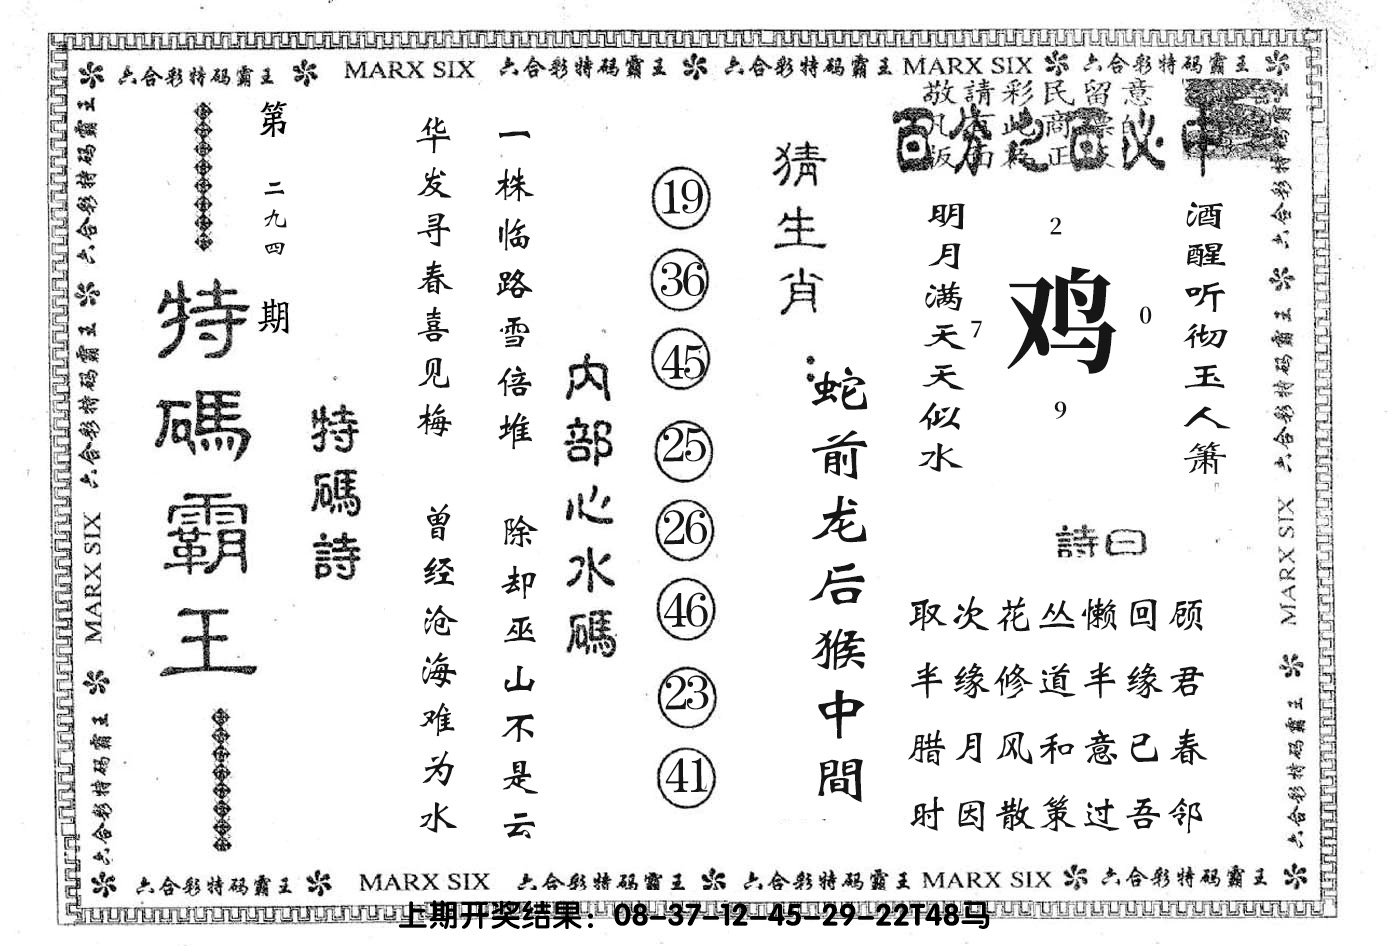 六合彩特码霸王 MARX SIX 六合彩特码霸王 六合彩特码霸王 MARX SIX 六合彩特码霸王
六合彩特码霸王 六合彩特码霸王 MARX SIX 六合彩特码霸王
第二九四期
特碼霸王
特碼詩
华发寻春喜见梅
一株临路雪倍堆
曾经沧海难为水
除却巫山不是云
内部心水碼
19
36
45
25
26
46
23
41
猜生肖：
蛇前龙后猴中間
敬請彩民留意
百分之百必中
明月满天天似水
2
7
鸡
0
9
酒醒听彻玉人箫
詩曰
取次花丛懒回顾
半缘修道半缘君
腊月风和意已春
时因散策过吾邻
六合彩特码霸王 六合彩特码霸王 MARX SIX 六合彩特码霸王
六合彩特码霸王 MARX SIX 六合彩特码霸王 六合彩特码霸王 MARX SIX 六合彩特码霸王
上期开奖结果：08-37-12-45-29-22T48马